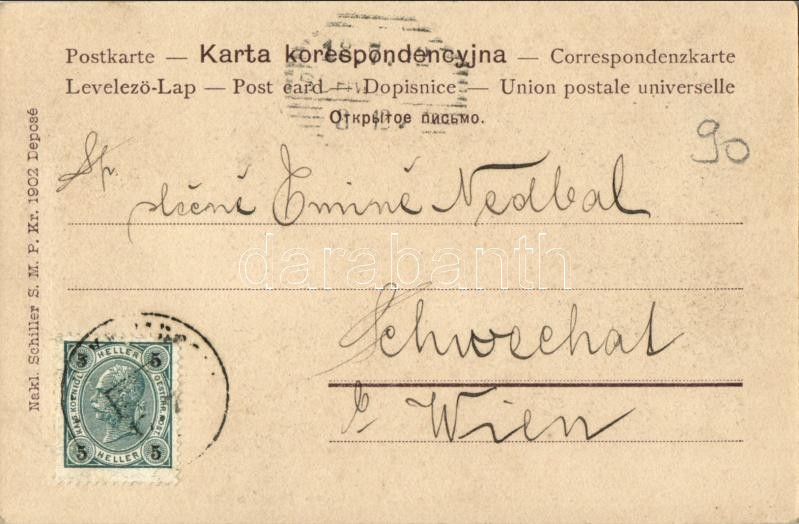 Postkarte — Karta korespondencyjna — Correspondenzkarte
Levelezö-Lap — Post card — Dopisnice — Union postale universelle
Открытое письмо.
90
Sp.
slečně Emině Nedbal
darabanth
Schwechat
Wien
Nakl. Schiller S. M. P. Kr. 1902 Deposé
5 HELLER 5
KAIS. KOENIGL. OESTERR. POST
5 HELLER 5